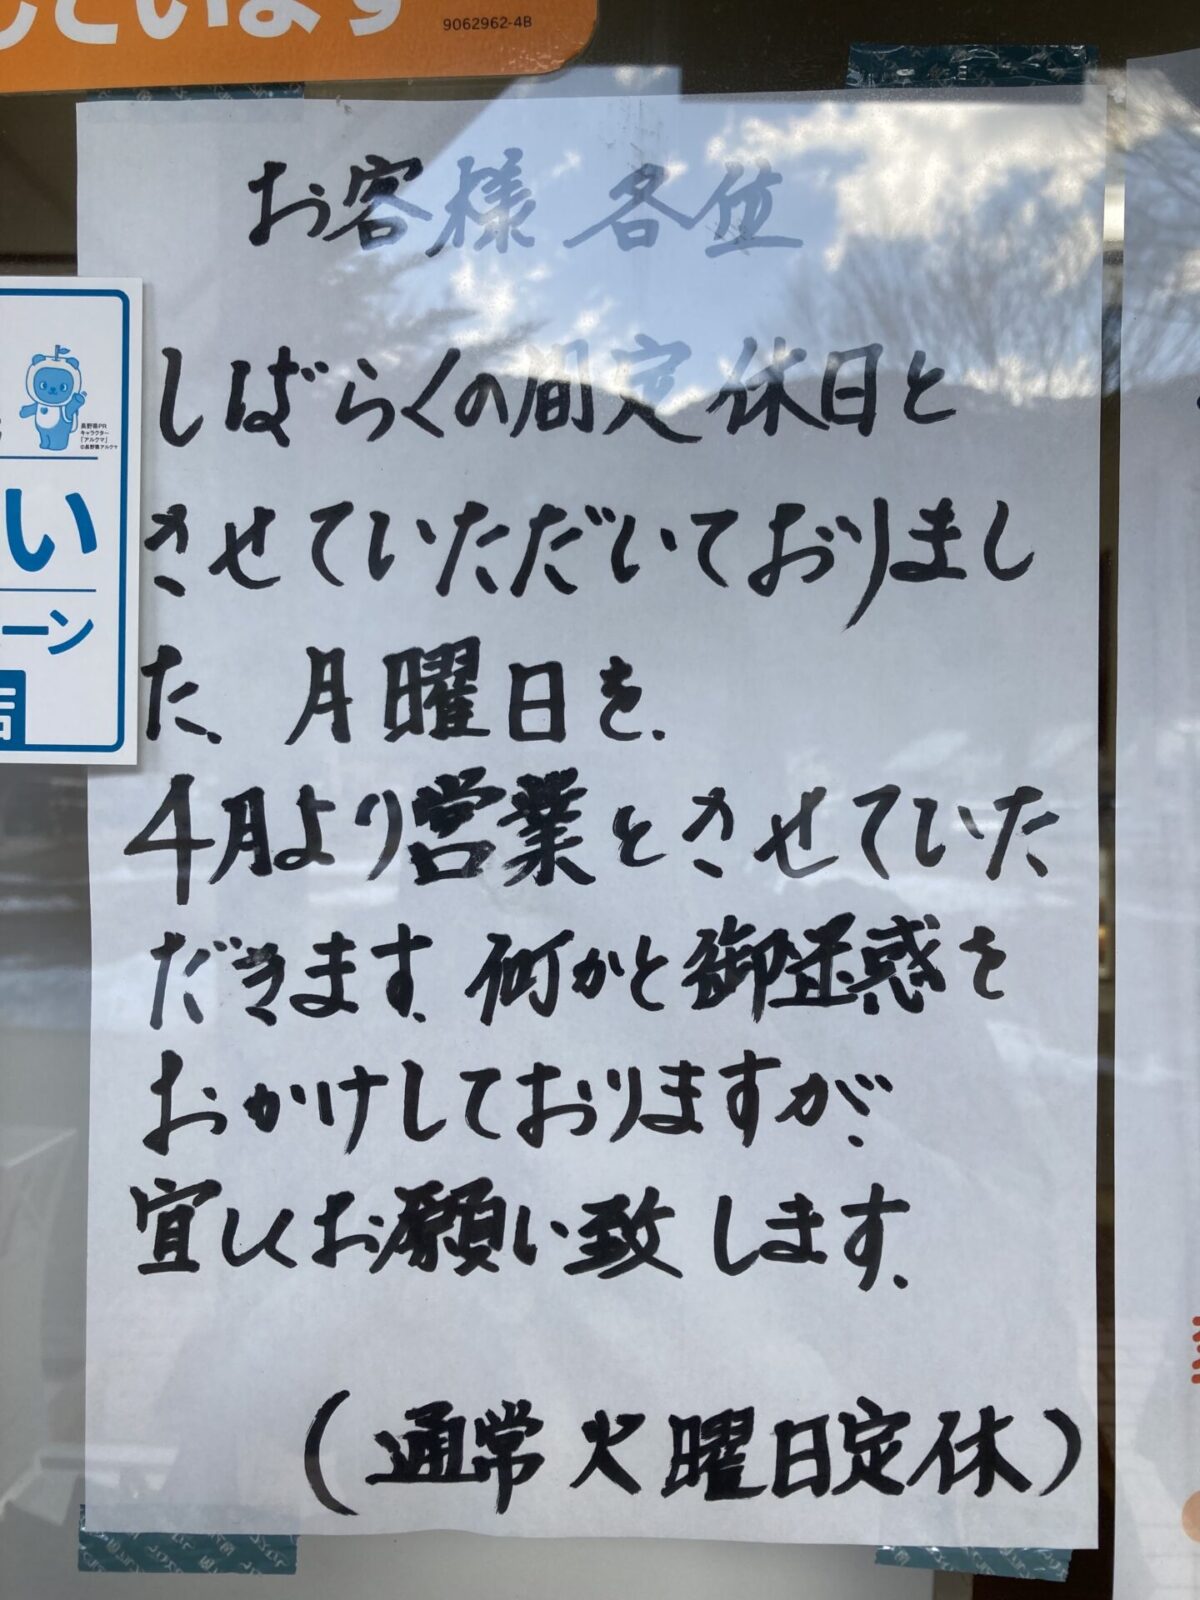 しています
9062962-4B
お客様 各位
しばらくの間定休日と
させていただいておりまし
た、月曜日を、
4月より営業とさせていた
だきます。何かと御迷惑を
おかけしておりますが、
宜しくお願い致します。
(通常 火曜日定休)
長野県PR
キャラクター
「アルクマ」
©長野県アルクマ
い
ーン
店